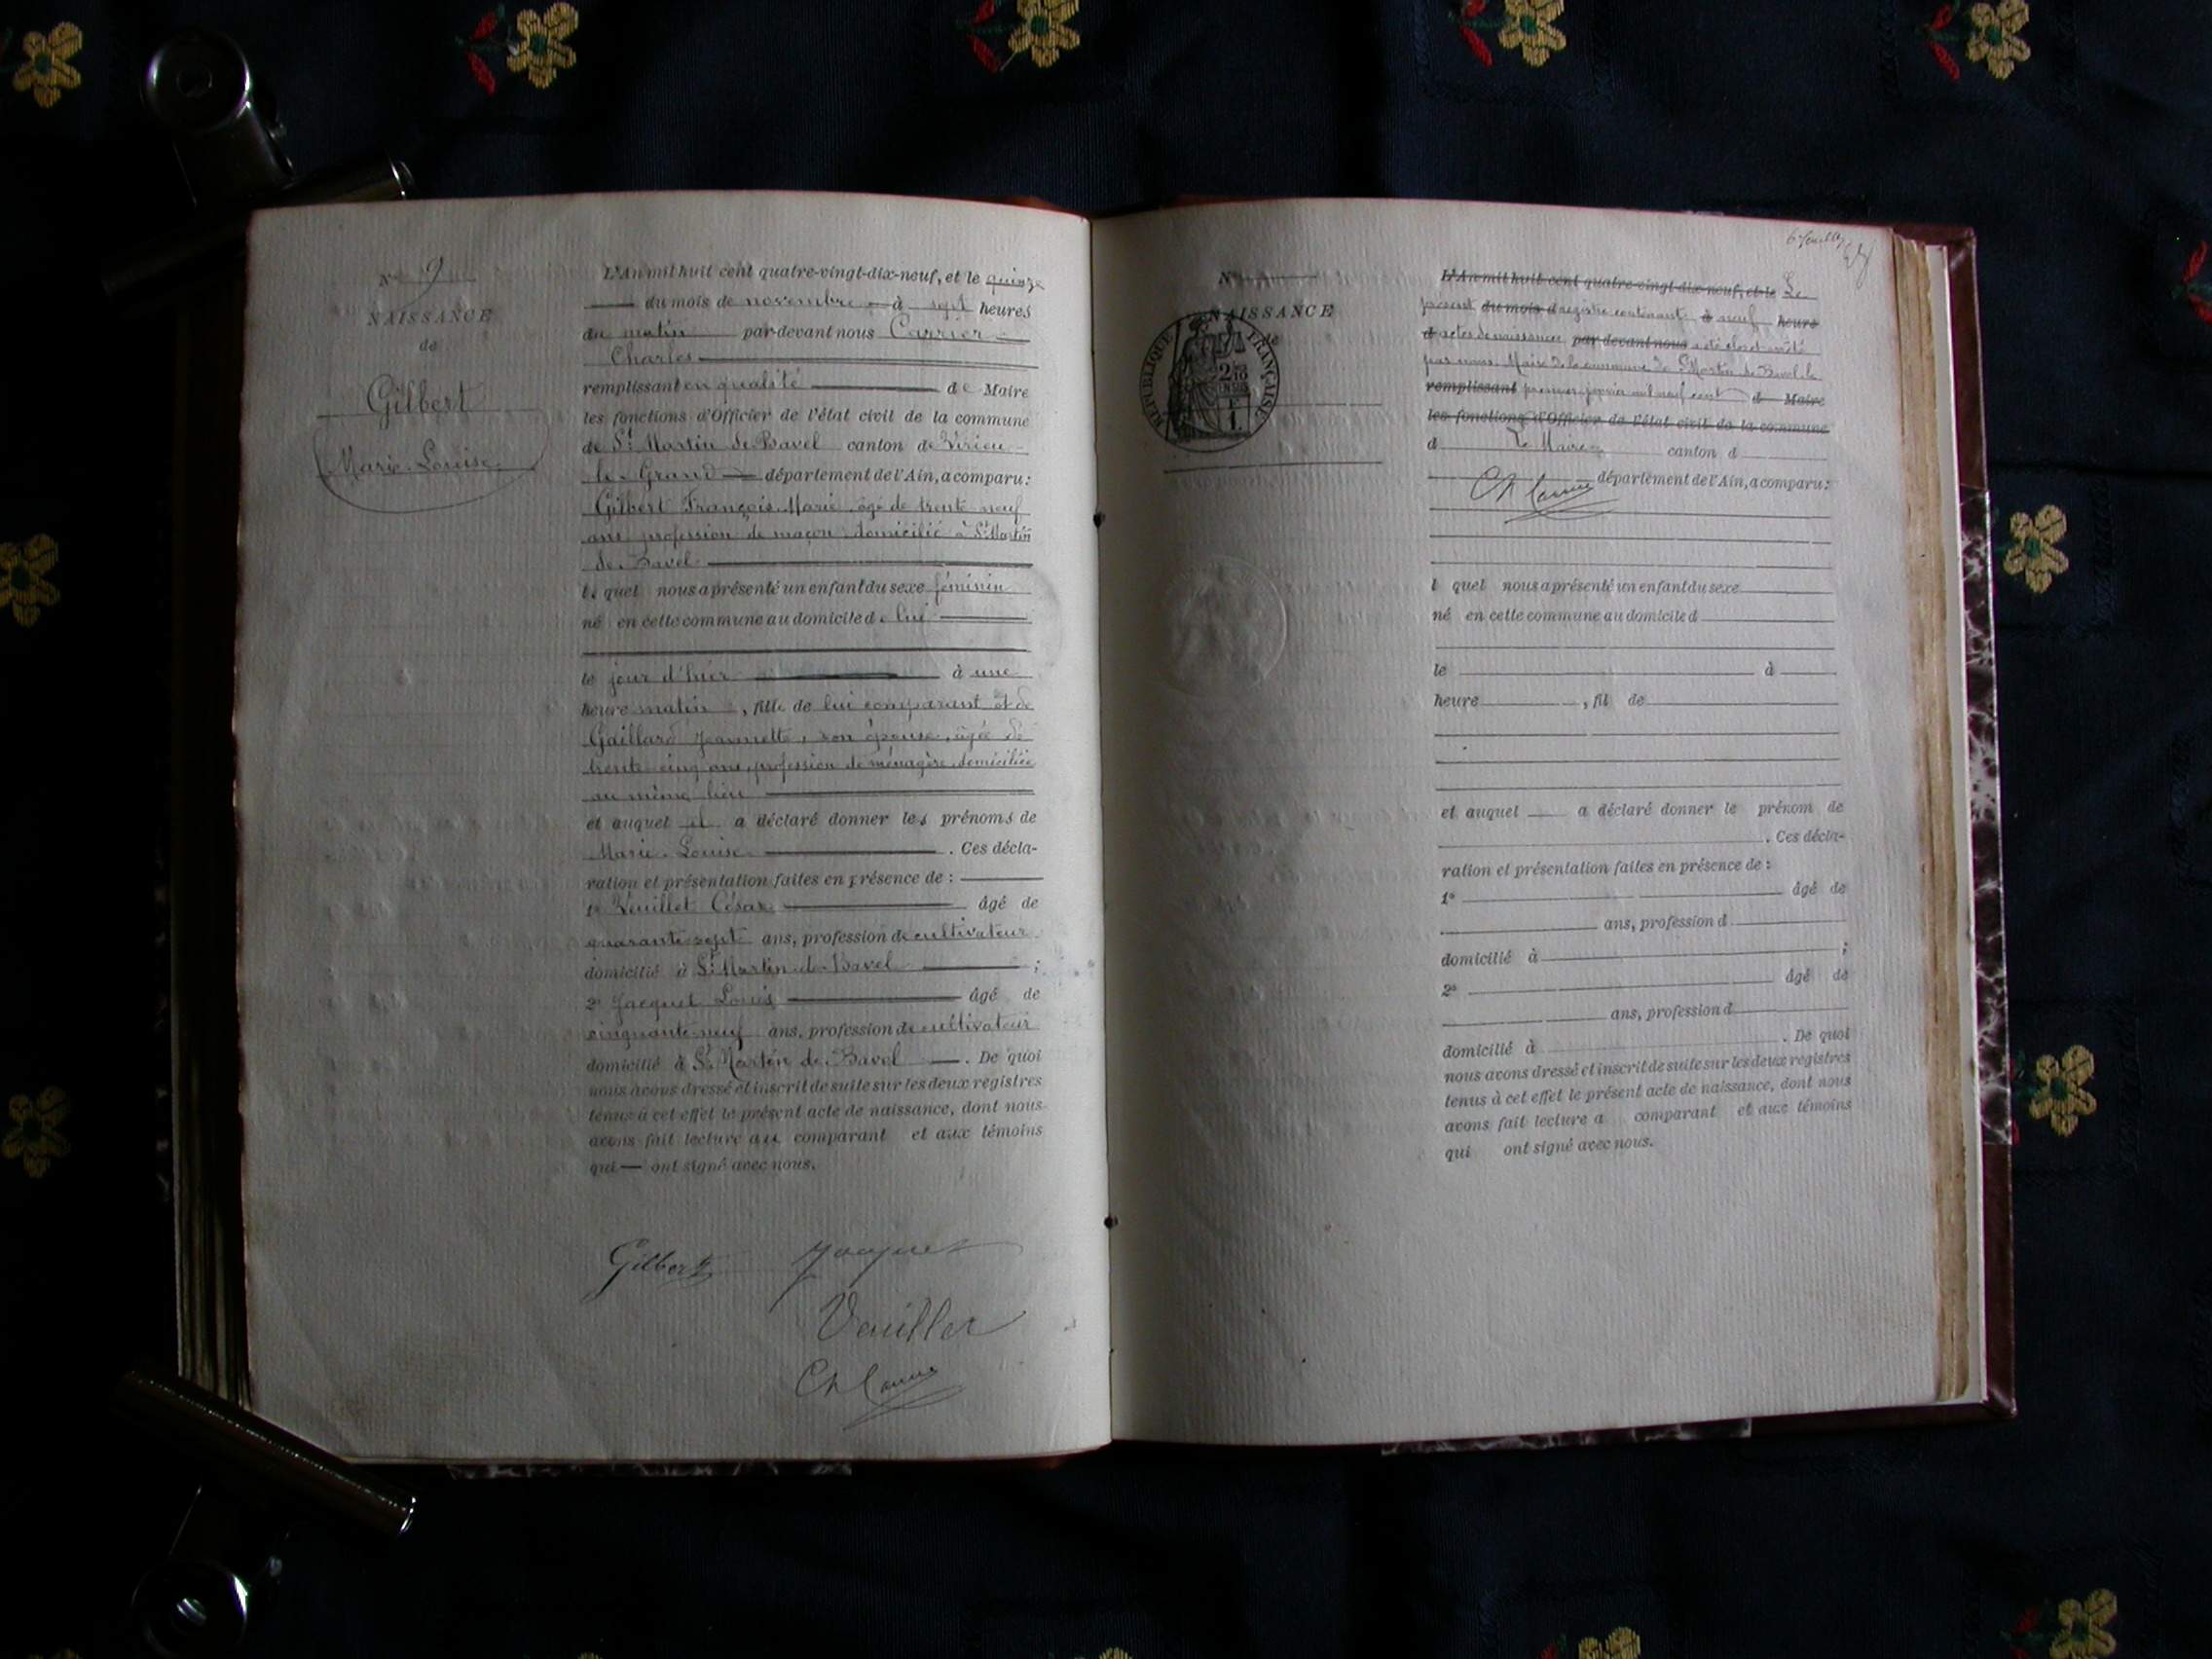 N° 9
NAISSANCE
de
Gilbert
Marie-Louise
L'An mil huit cent quatre-vingt-dix-neuf, et le quinze
du mois de novembre à sept heures
du matin par-devant nous Carrier
Charles
remplissant en qualité de Maire
les fonctions d'Officier de l'état civil de la commune
de St Martin de Bavel canton de Virieu
le Grand département de l'Ain, a comparu :
Gilbert François Marie âgé de trente-neuf
ans profession de maçon domicilié à St Martin
de Bavel
lequel nous a présenté un enfant du sexe féminin
né en cette commune au domicile de lui
le jour d'hier à une
heure matin, fille de lui comparant et de
Gaillard Jeannette, son épouse, âgée de
trente-cinq ans, profession de ménagère, domiciliée
au même lieu
et auquel il a déclaré donner les prénoms de
Marie-Louise. Ces décla-
ration et présentation faites en présence de :
1° Veuillet César âgé de
quarante-sept ans, profession de cultivateur
domicilié à St Martin de Bavel ;
2° Jacquet Louis âgé de
cinquante-neuf ans, profession de cultivateur
domicilié à St Martin de Bavel. De quoi
nous avons dressé et inscrit de suite sur les deux registres
tenus à cet effet le présent acte de naissance, dont nous
avons fait lecture au comparant et aux témoins
qui ont signé avec nous.
Gilbert Jacquet
Veuillet
6e feuillet
N°
NAISSANCE
de
RÉPUBLIQUE FRANÇAISE
L'An mil huit cent quatre-vingt-dix-neuf, et le Le
présent du mois d registre contenant à neuf heure
d actes de naissances par devant nous a été clos et arrêté
par nous, Maire de la commune de St Martin de Bavel le
remplissant premier janvier mil neuf cent d Maire
les fonctions d'Officier de l'état civil de la commune
d Le Maire canton d
département de l'Ain, a comparu :
l quel nous a présenté un enfant du sexe
né en cette commune au domicile d
le à
heure , fil de
et auquel a déclaré donner le prénom de
. Ces décla-
ration et présentation faites en présence de :
1° âgé de
ans, profession d
domicilié à ;
2° âgé de
ans, profession d
domicilié à . De quoi
nous avons dressé et inscrit de suite sur les deux registres
tenus à cet effet le présent acte de naissance, dont nous
avons fait lecture a comparant et aux témoins
qui ont signé avec nous.